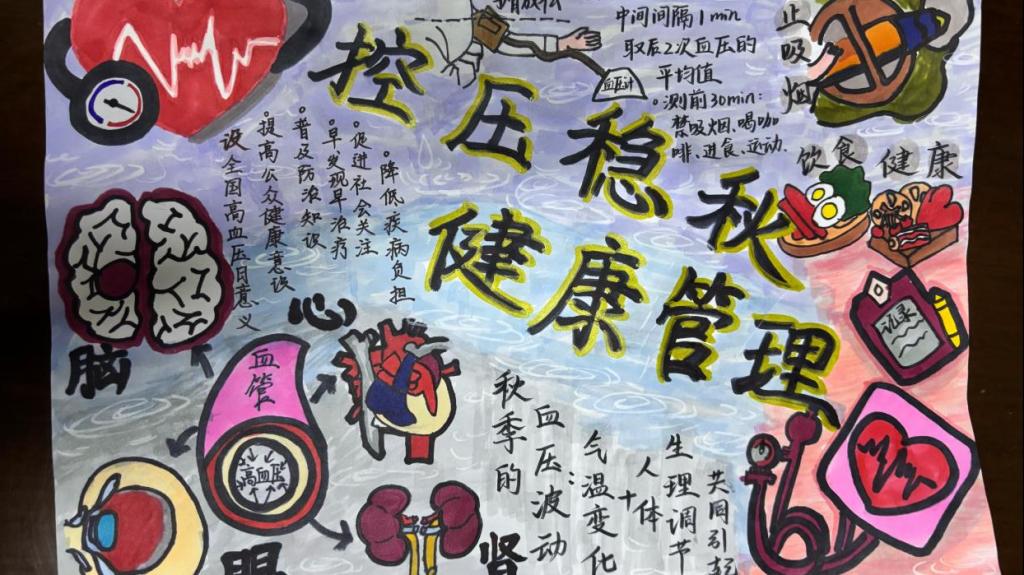 控压稳秋
健康管理
中间间隔1min
取后2次血压的
平均值
°测前30min:
禁吸烟、喝咖
啡、进食、运动.
血压计
止吸烟
饮食健康
记录
设全国高血压日意义
°提高公众健康意识
°普及防治知识
°早发现早治疗
°促进社会关注
°降低疾病负担
脑
心
血管
高血压
眼
肾
秋季的
血压波动:
气温变化
+
人体
生理调节
共同引起